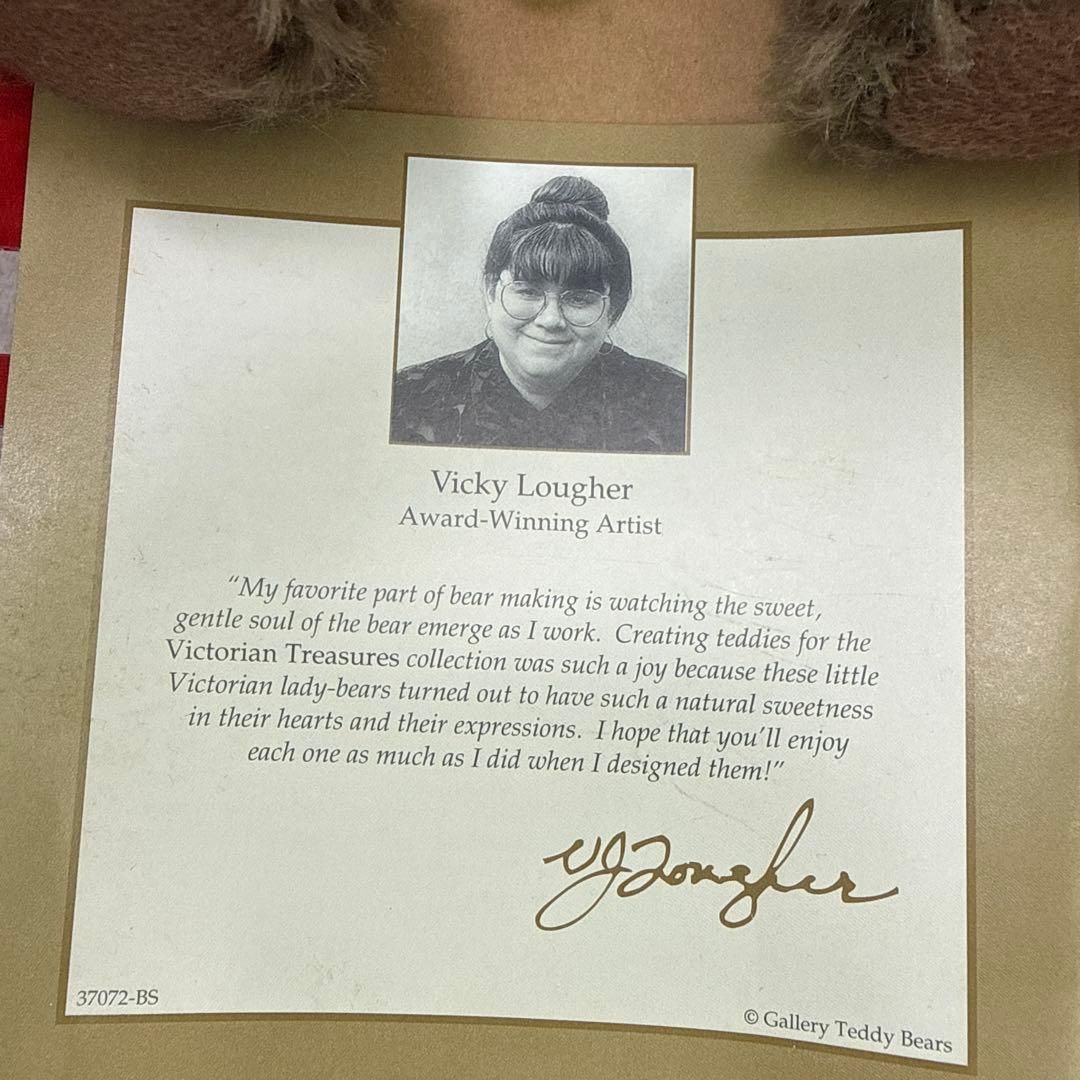 Vicky Lougher
Award-Winning Artist
“My favorite part of bear making is watching the sweet,
gentle soul of the bear emerge as I work. Creating teddies for the
Victorian Treasures collection was such a joy because these little
Victorian lady-bears turned out to have such a natural sweetness
in their hearts and their expressions. I hope that you’ll enjoy
each one as much as I did when I designed them!”
VJLougher
37072-BS
© Gallery Teddy Bears